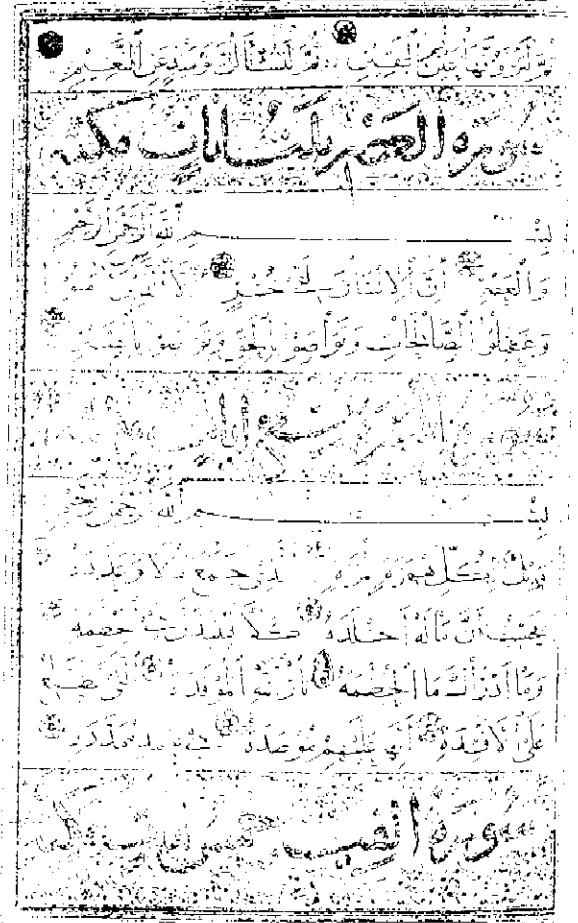 ثُمَّ لَتَرَوُنَّهَا عَيْنَ الْيَقِينِ ثُمَّ لَتُسْأَلُنَّ يَوْمَئِذٍ عَنِ النَّعِيمِ
سورة العصر ثلث ايات مكية
بِسْمِ اللَّهِ الرَّحْمَٰنِ الرَّحِيمِ
وَالْعَصْرِ إِنَّ الْإِنْسَانَ لَفِي خُسْرٍ إِلَّا الَّذِينَ آمَنُوا
وَعَمِلُوا الصَّالِحَاتِ وَتَوَاصَوْا بِالْحَقِّ وَتَوَاصَوْا بِالصَّبْرِ
بِسْمِ اللَّهِ الرَّحْمَٰنِ الرَّحِيمِ
وَيْلٌ لِكُلِّ هُمَزَةٍ لُمَزَةٍ الَّذِي جَمَعَ مَالًا وَعَدَّدَهُ
يَحْسَبُ أَنَّ مَالَهُ أَخْلَدَهُ كَلَّا لَيُنْبَذَنَّ فِي الْحُطَمَةِ
وَمَا أَدْرَاكَ مَا الْحُطَمَةُ نَارُ اللَّهِ الْمُوقَدَةُ الَّتِي تَطَّلِعُ
عَلَى الْأَفْئِدَةِ إِنَّهَا عَلَيْهِمْ مُؤْصَدَةٌ فِي عَمَدٍ مُمَدَّدَةٍ
سورة الفيل خمس ايات مكية